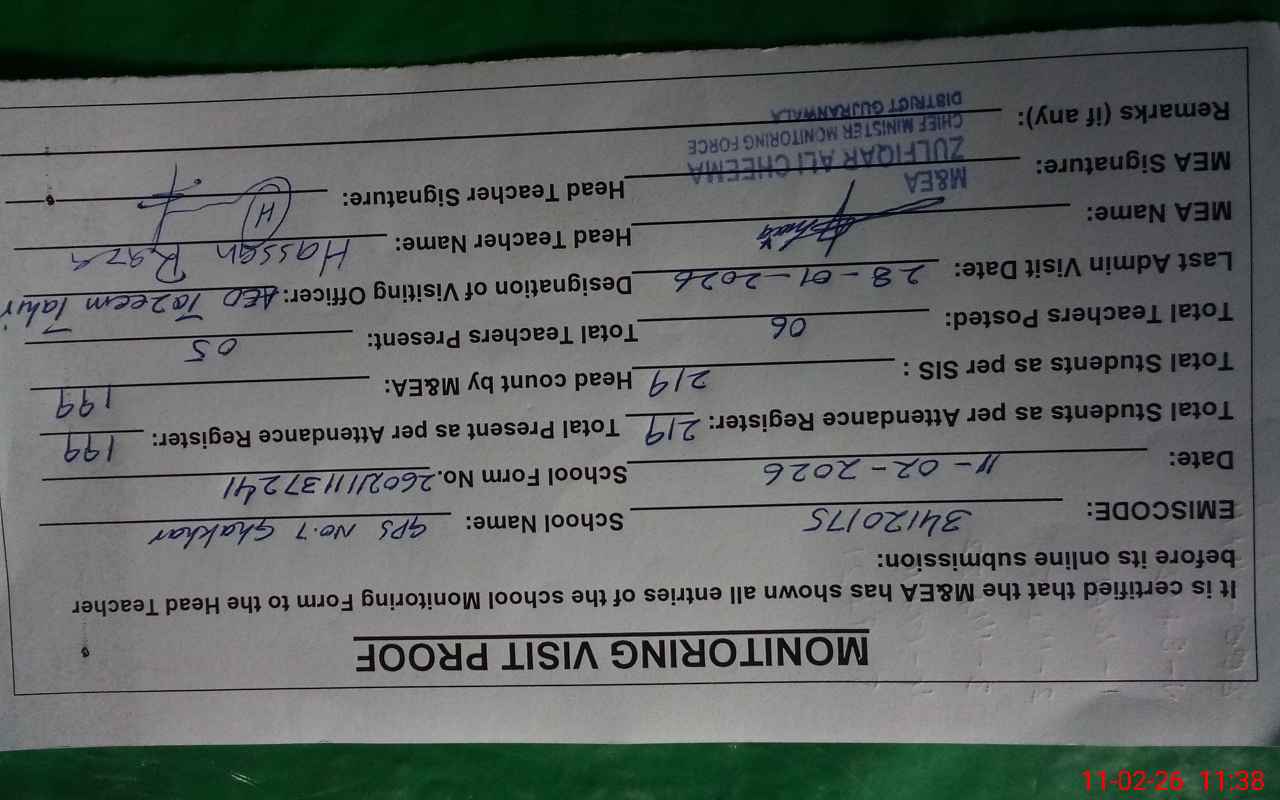 MONITORING VISIT PROOF
It is certified that the M&EA has shown all entries of the school Monitoring Form to the Head Teacher
before its online submission:
EMISCODE: 34120175 School Name: GPS No.7 Ghakhar
Date: 11-02-2026 School Form No. 260211137241
Total Students as per Attendance Register: 219 Total Present as per Attendance Register: 199
Total Students as per SIS : 219 Head count by M&EA: 199
Total Teachers Posted: 06 Total Teachers Present: 05
Last Admin Visit Date: 28-01-2026 Designation of Visiting Officer: AEO Tazeem Tahir
MEA Name: Head Teacher Name: Hassan Raza
MEA Signature: Head Teacher Signature: H
M&EA
ZULFIQAR ALI CHEEMA
CHIEF MINISTER MONITORING FORCE
DISTRICT GUJRANWALA
Remarks (if any):
11-02-26 11:38